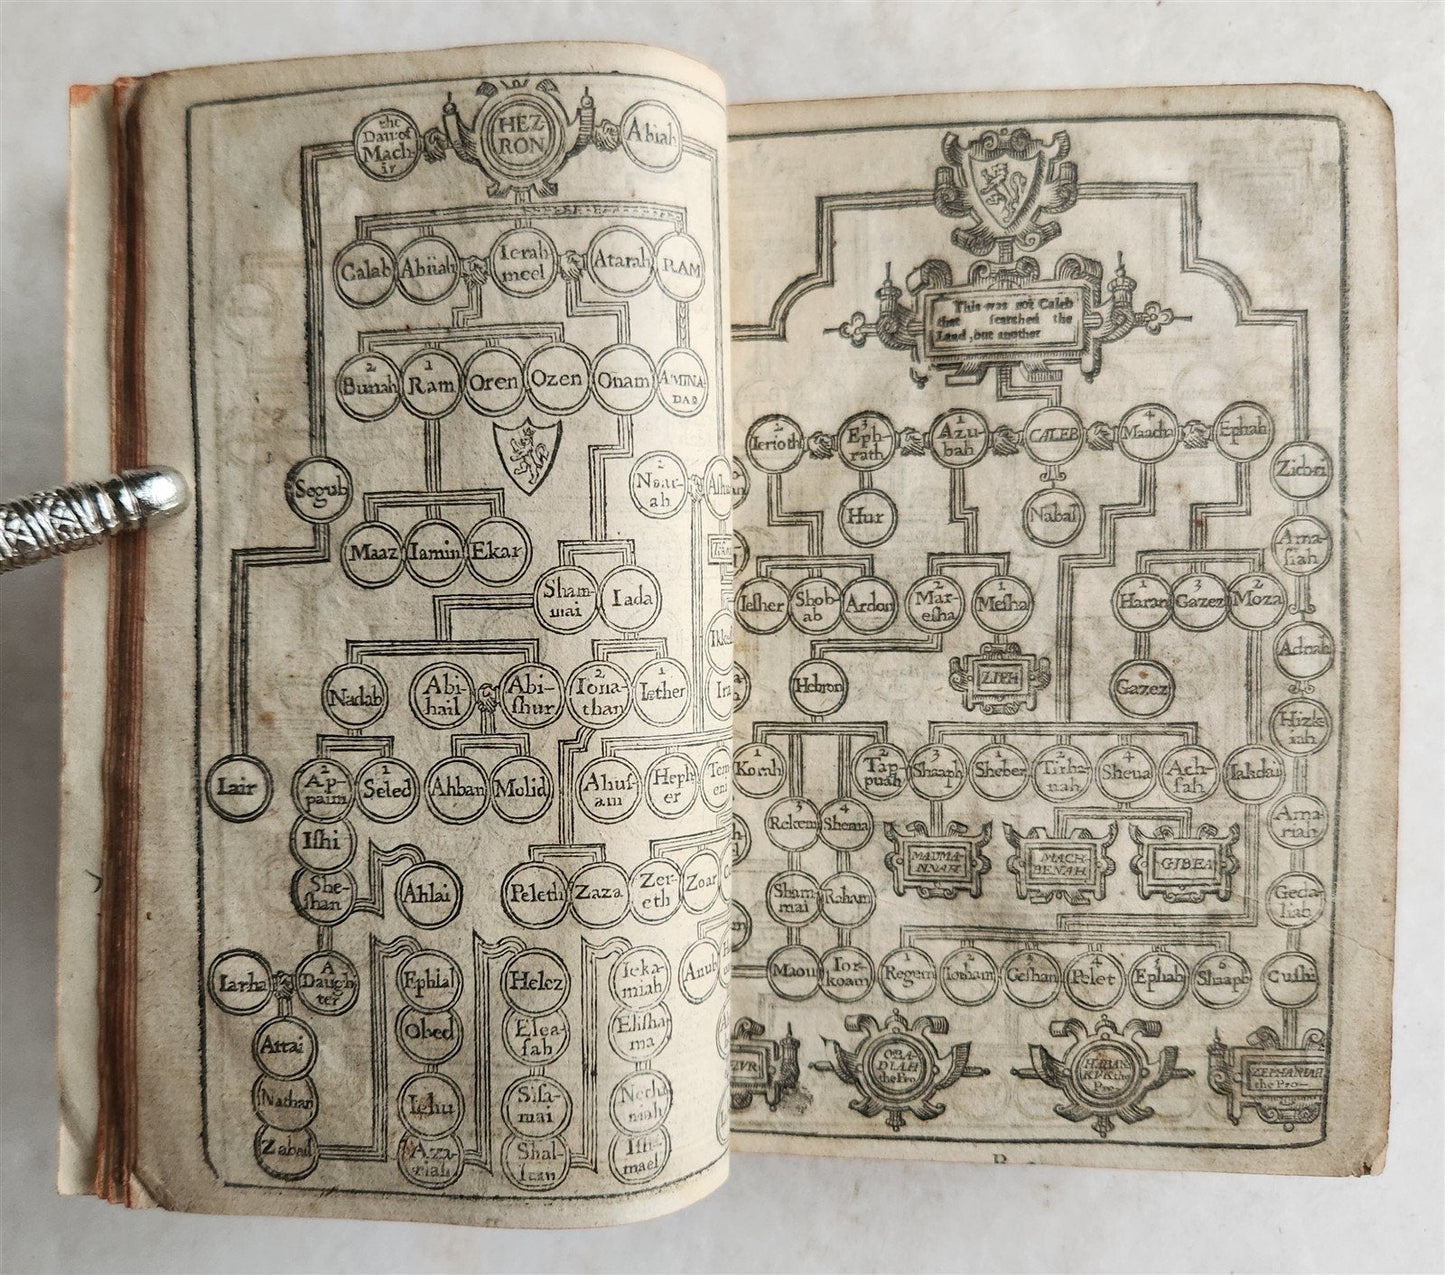 the
Dau: of
Mach-
ir
HEZ
RON
Abiah
Calab
Abiiah
Ierah
meel
Atarah
RAM
2
Bunah
1
Ram
Oren
Ozen
Onam
AMINA-
DAB
Segub
2
Naar-
ah
Maaz
Iamin
Ekar
Sham-
mai
Iada
Nadab
Abi-
hail
Abi-
shur
2
Iona-
than
1
Iether
Iair
2
Ap-
paim
1
Seled
Ahban
Molid
Ahus-
am
Heph
er
Ishi
She-
shan
Ahlai
Peleth
Zaza
Zer-
eth
Zoar
Iarha
A
Daugh
ter
Ephlal
Helez
Ieka-
miah
Attai
Obed
Elea-
sah
Elisha-
ma
Nathan
Iehu
Sisa-
mai
Netha-
niah
Zabad
Aza-
riah
Shal-
lum
Ish-
mael
This was not Caleb
that searched the
Land, but another
2
Ierioth
3
Eph-
rath
1
Azu-
bah
CALEB
4
Maacha
Ephah
Zichri
Hur
Nabal
Ama-
siah
Iesher
Shob-
ab
Ardon
2
Mar-
esha
1
Mesha
1
Haran
3
Gazez
2
Moza
Adnah
Hebron
ZIPH
Gazez
Hizk-
iah
1
Korah
2
Tap-
puah
3
Shaaph
1
Sheber
2
Tirha-
nah
4
Sheua
Ach-
sah
Iakdai
3
Rekem
4
Shema
Ama-
riah
MADMA-
NNAH
MACH-
BENAH
GIBEA
Sham-
mai
Raham
Geda-
liah
Maon
Ior-
koam
1
Regem
2
Iotham
3
Geshan
4
Pelet
5
Ephah
6
Shaaph
Cushi
ZUR
OBA-
DIAH
the Pro
HABAK-
KUK the
Pro-
ZEPHANIAH
the Pro-